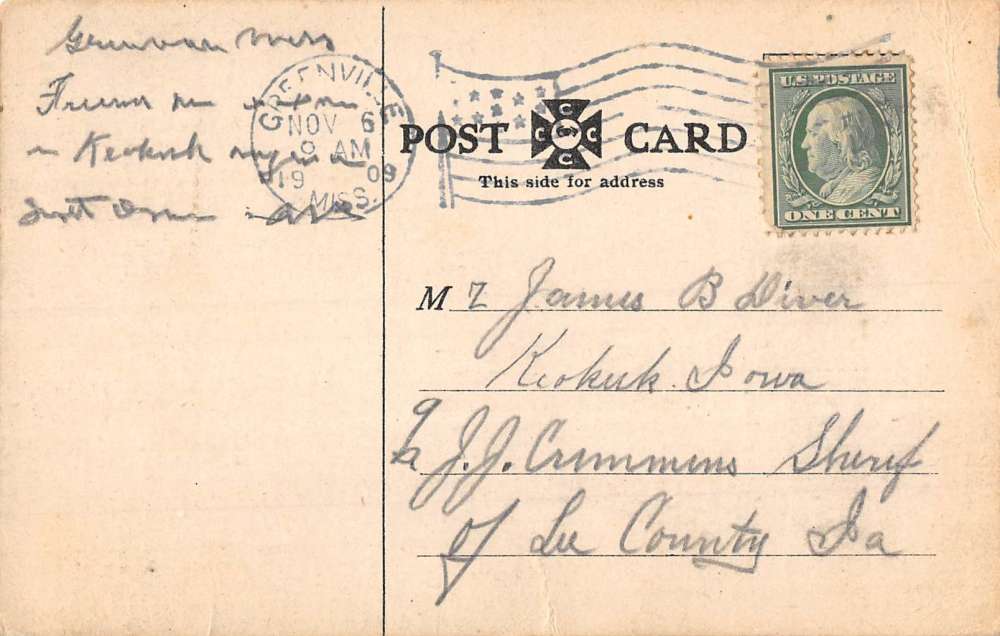 Friend
in Keokuk
GREENVILLE
NOV 6
9 AM
1909
MISS.
POST CARD
This side for address
U.S. POSTAGE
ONE CENT
Mr James B Diver
Keokuk Iowa
c/o J.J. Crimmins Sherif
of Lee County Ia